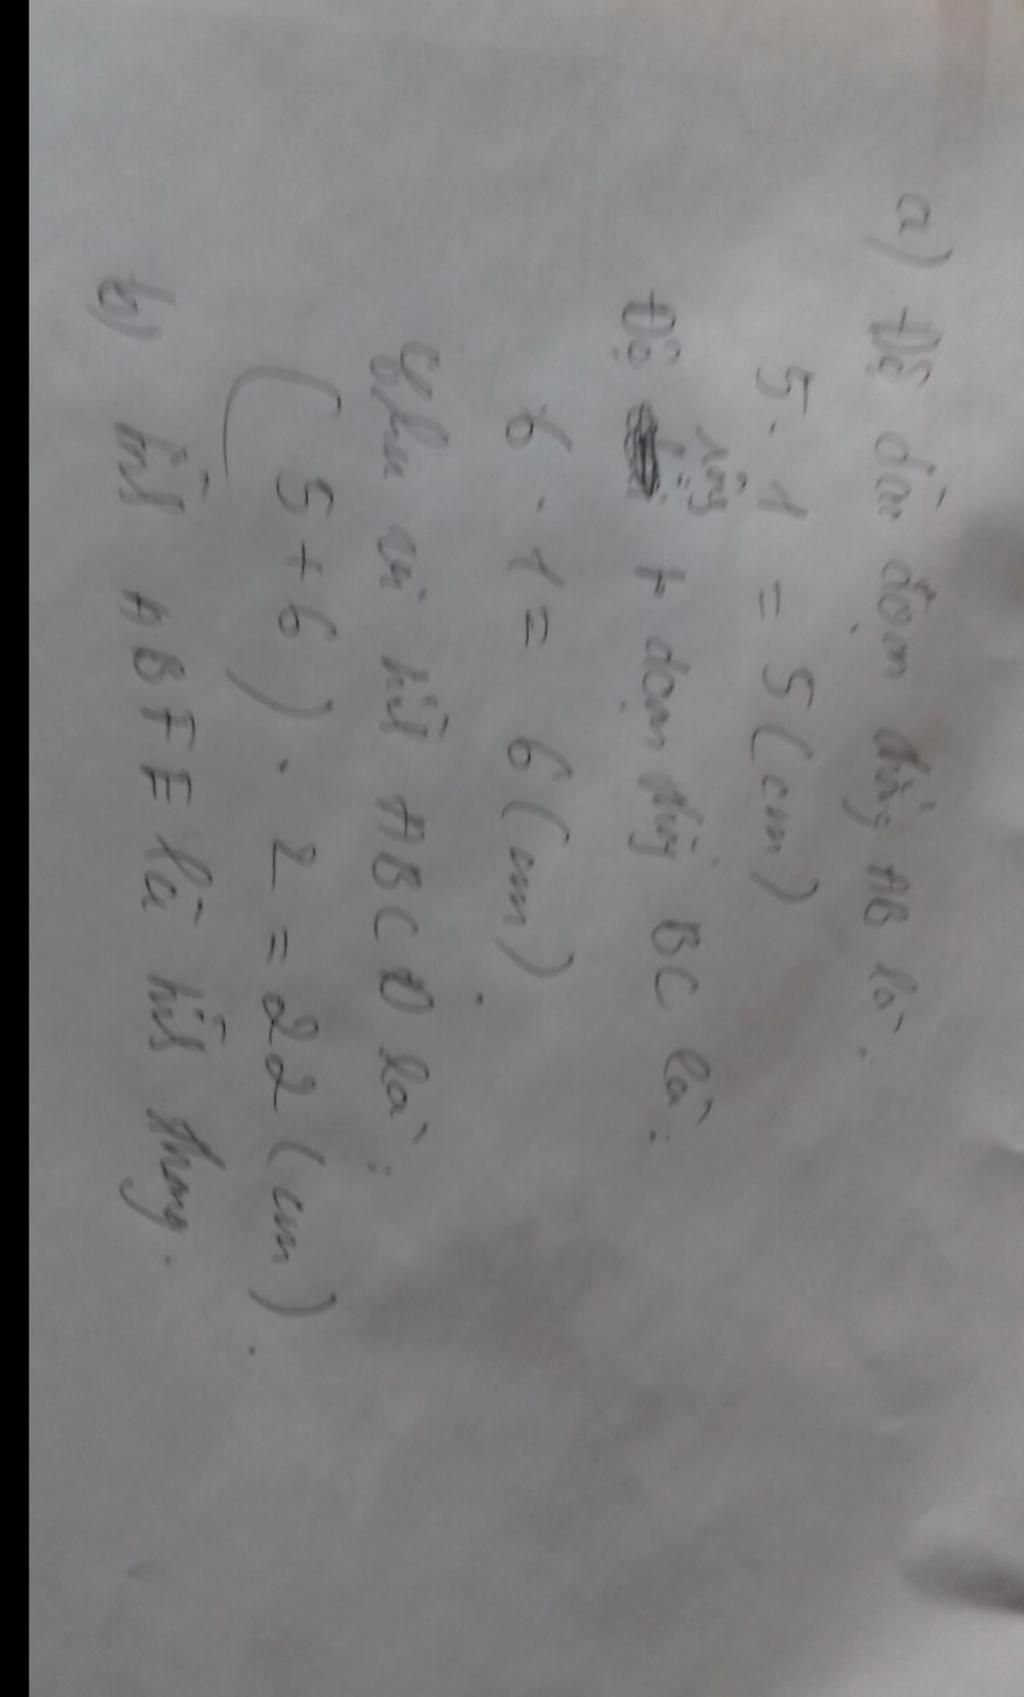 a) Độ dài đoạn thẳng AB là:
5 . 1 = 5 (cm)
Độ rộng đoạn thẳng BC là:
6 . 1 = 6 (cm)
Chu vi hình ABCD là:
(5 + 6) . 2 = 22 (cm).
b) hình ABFE là hình thang.